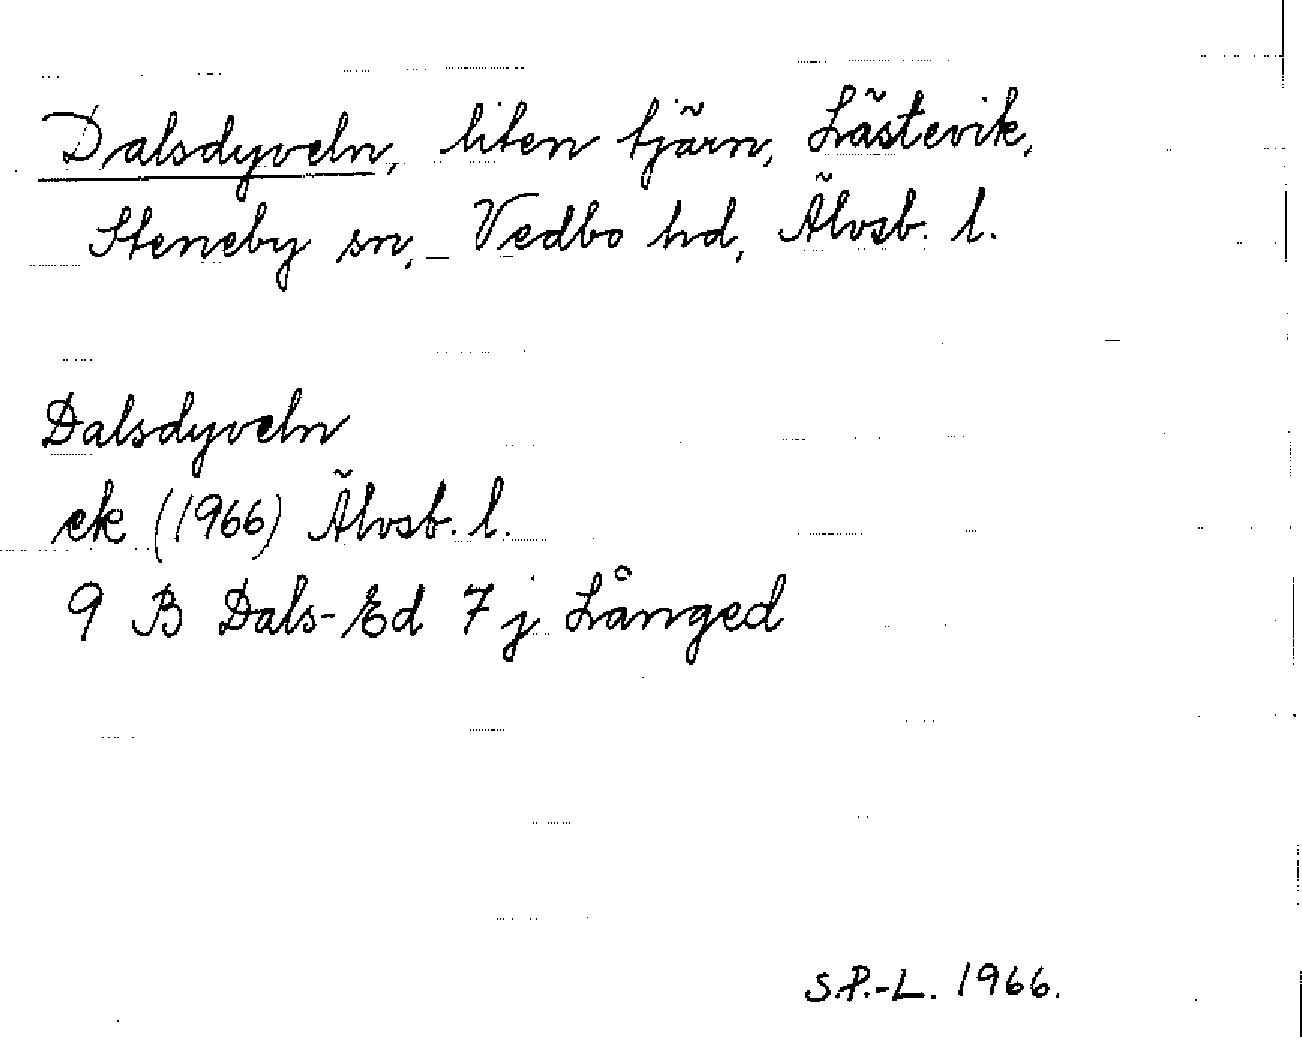 Dalsdyveln, liten tjärn, Lästevik,
Steneby sn, Vedbo hd, Älvsb. l.
Dalsdyveln
ek (1966) Älvsb. l.
9 B Dals-Ed 7 j Långed
S.P.-L. 1966.